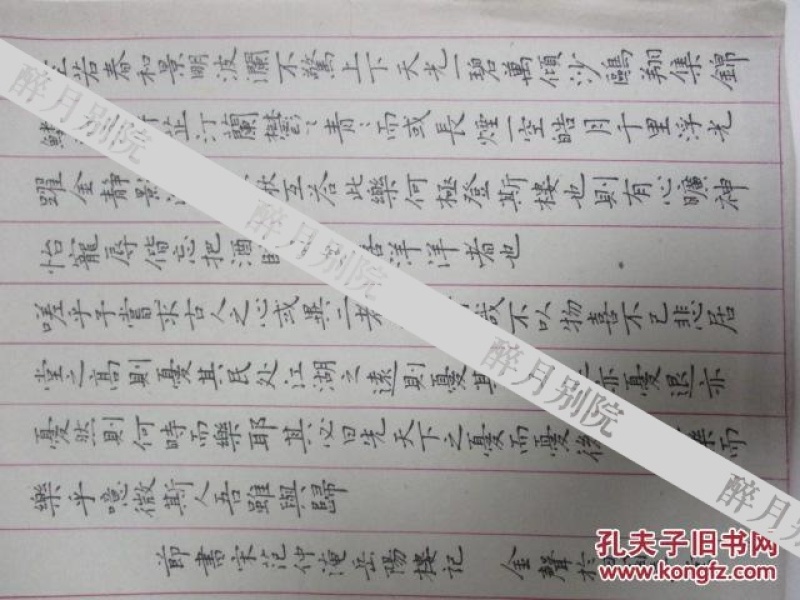 若春和景明波瀾不驚上下天光一碧萬傾沙鷗翔集錦
芷汀蘭鬱〻青〻而或長煙一空皓月千里浮光
躍金靜影互答此樂何極登斯樓也則有心曠神
怡寵辱偕忘把酒喜洋洋者也
嗟乎予嘗求古人之心或異二者哉不以物喜不己悲居
堂之高則憂其民处江湖之遠則憂其亦憂退亦
憂然則何時而樂耶其必曰先天下之憂而憂後樂而
樂乎噫微斯人吾雖與歸
節書宋范仲淹岳陽樓記 金聲於
醉月别院
醉月别院
醉月别院
醉月别院
孔夫子旧书网
www.kongfz.com